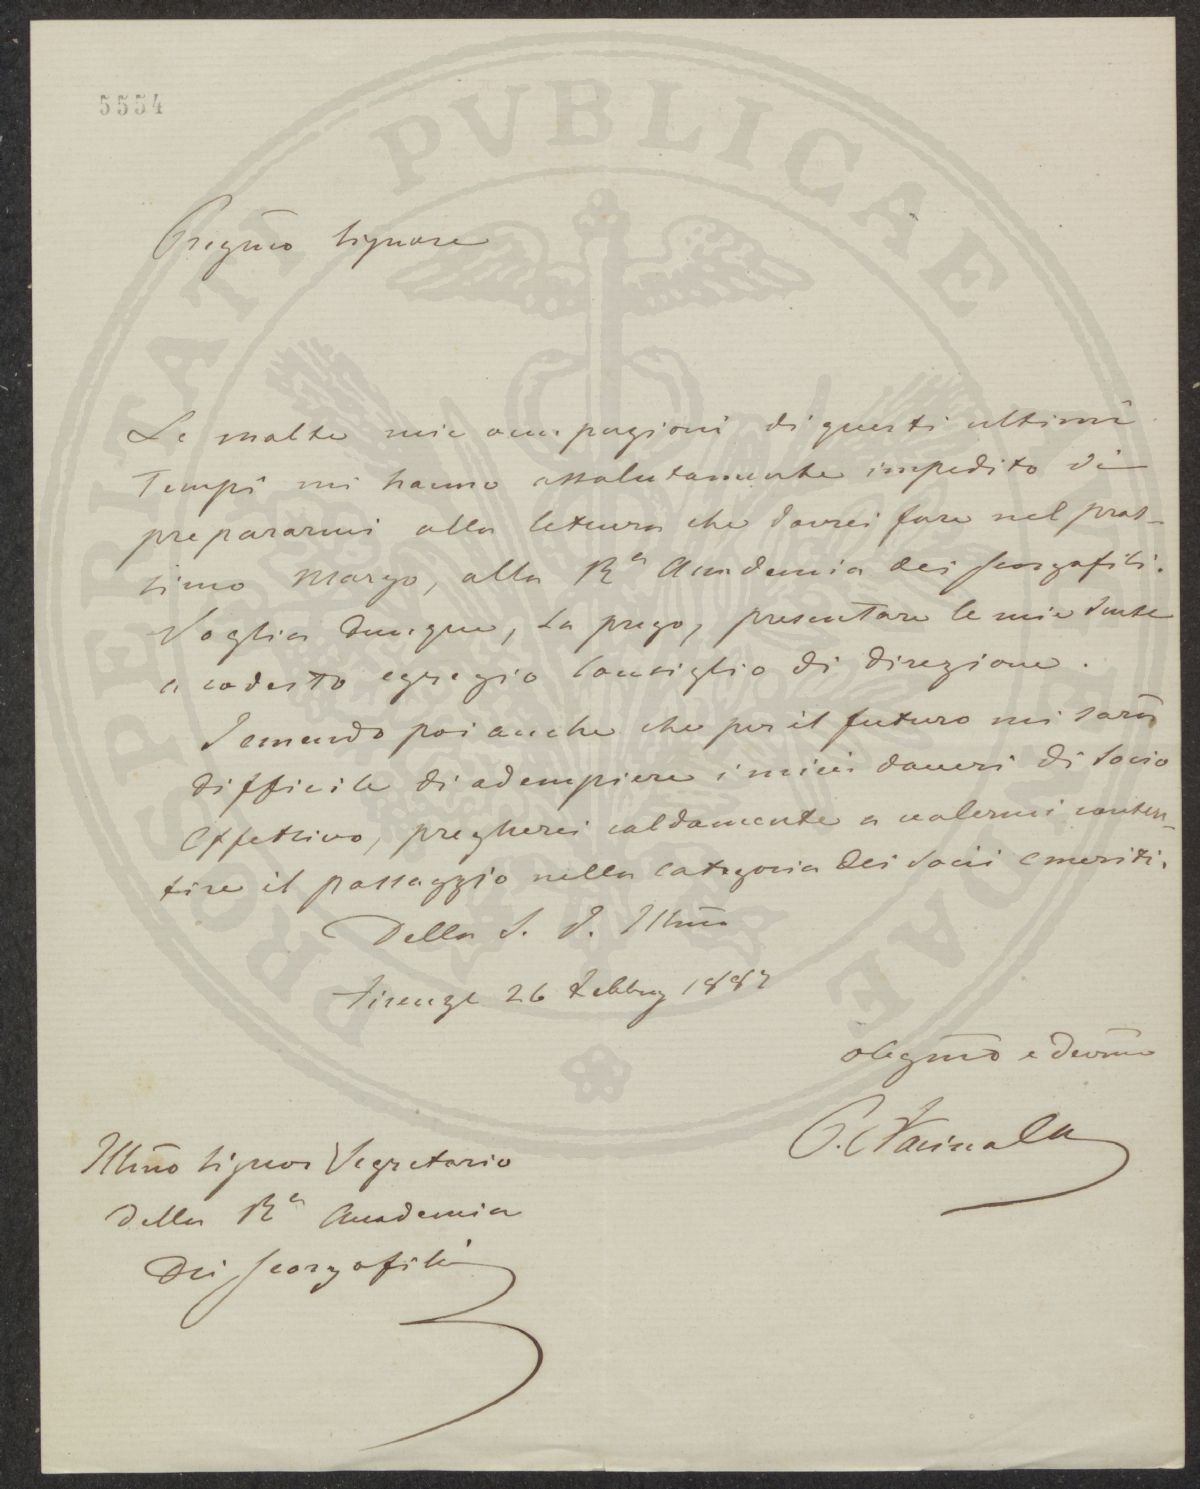 5554
PROSPERITATI PVBLICAE AVGENDAE
Pregmo Signore
Le molte mie occupazioni di questi ultimi
Tempi mi hanno assolutamente impedito di
prepararmi alla lettura che dovrei fare nel pros-
simo Marzo, alla Ra Accademia dei Georgofili.
Voglia dunque, La prego, presentare le mie scuse
a codesto egregio Consiglio di direzione.
Temendo poi anche che per il futuro mi sarà
difficile di adempiere i miei doveri di Socio
Effettivo, pregherei caldamente a volermi consen-
tire il passaggio nella categoria dei Socii emeriti.
Della S. V. Illma
Firenze 26 Febbrajo 1887
obbgmo e devmo
Illmo Signor Segretario
della Ra Accademia
dei Georgofili